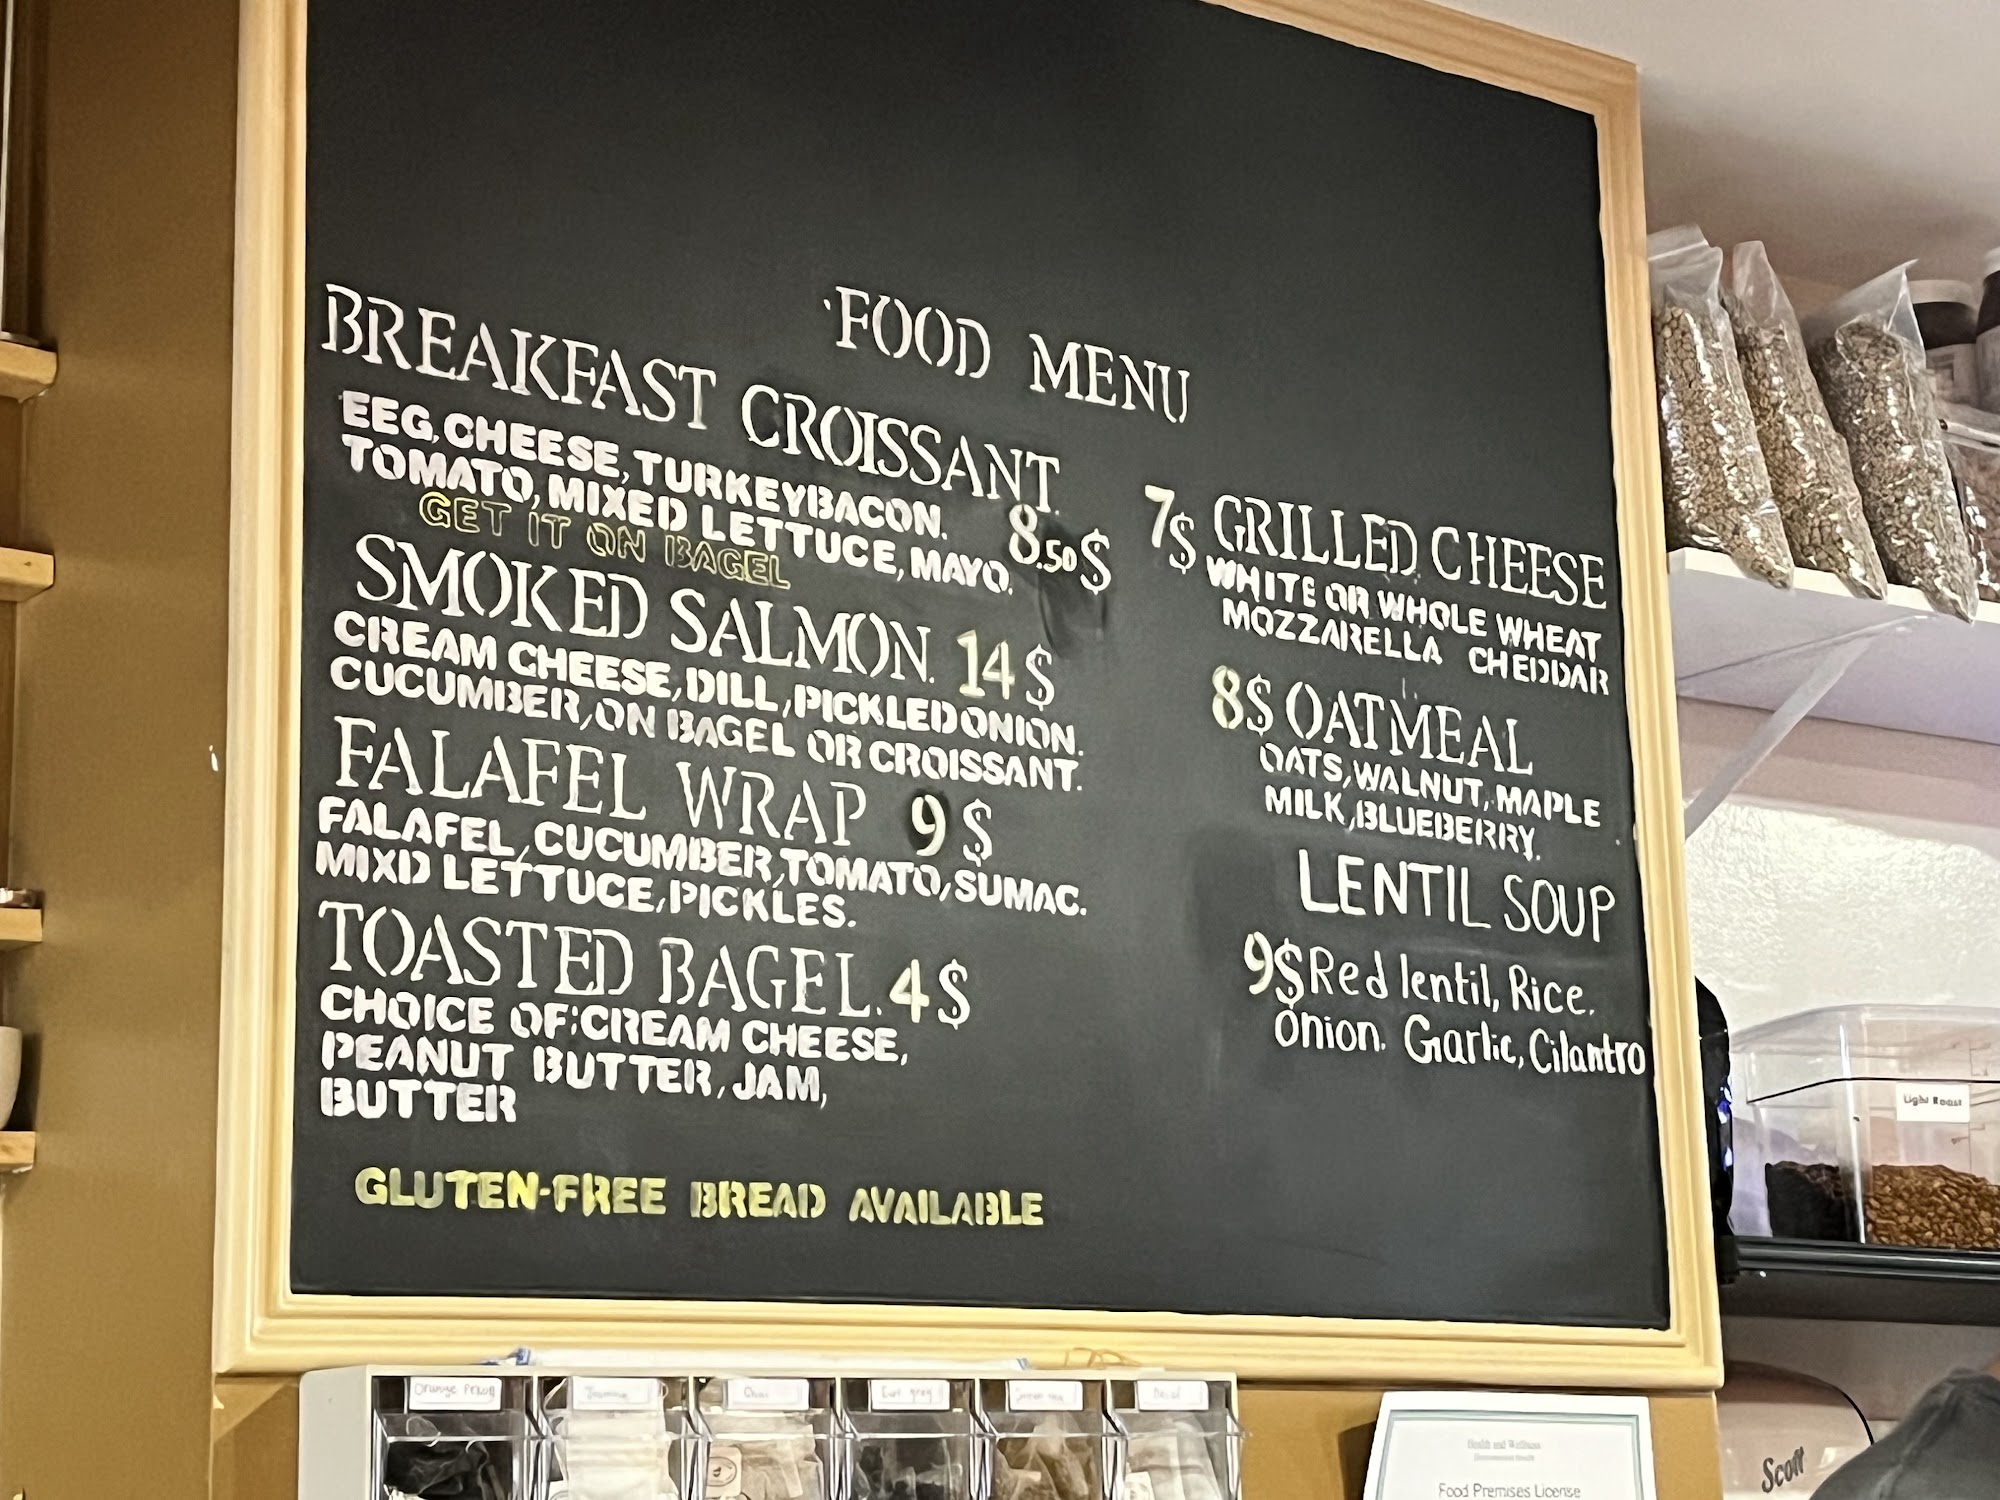 FOOD MENU
BREAKFAST CROISSANT.
EEG, CHEESE, TURKEYBACON.
TOMATO, MIXED LETTUCE, MAYO.
8.50$
GET IT ON BAGEL
SMOKED SALMON. 14$
CREAM CHEESE, DILL, PICKLED ONION.
CUCUMBER, ON BAGEL OR CROISSANT.
FALAFEL WRAP 9$
FALAFEL, CUCUMBER, TOMATO, SUMAC.
MIXD LETTUCE, PICKLES.
TOASTED BAGEL. 4$
CHOICE OF: CREAM CHEESE,
PEANUT BUTTER, JAM,
BUTTER
GLUTEN-FREE BREAD AVAILABLE
7$ GRILLED CHEESE
WHITE OR WHOLE WHEAT
MOZZARELLA CHEDDAR
8$ OATMEAL
OATS, WALNUT, MAPLE
MILK, BLUEBERRY.
LENTIL SOUP
9$ Red lentil, Rice.
Onion. Garlic, Cilantro
Light Roast
Orange Pekoe
Jasmine
Chai
Earl grey
Health and Wellness
Food Premises License
Scott